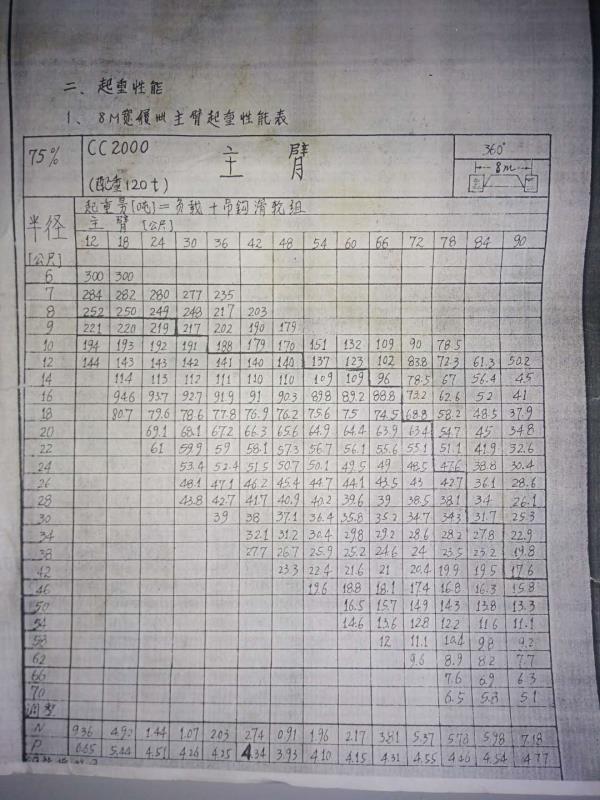 二、起重性能
1、8M宽履带主臂起重性能表
75% CC2000 主臂 360°
(配重120t) 8m
起重量[吨]=负载+吊钩滑轮组
半径 主臂[公尺]
[公尺] 12 18 24 30 36 42 48 54 60 66 72 78 84 90
6 300 300
7 284 282 280 277 235
8 252 250 249 248 217 203
9 221 220 219 217 202 190 179
10 194 193 192 191 188 179 170 151 132 109 90 78.5
12 144 143 143 142 141 140 140 137 123 102 83.8 72.3 61.3 50.2
14 114 113 112 111 110 110 109 109 96 78.5 67 56.4 45
16 94.6 93.7 92.7 91.9 91 90.3 89.8 89.2 88.8 73.2 62.6 52 41
18 80.7 79.6 78.6 77.8 76.9 76.2 75.6 75 74.5 68.8 58.2 48.5 37.9
20 69.1 68.1 67.2 66.3 65.6 64.9 64.4 63.9 63.4 54.7 45 34.8
22 61 59.9 59 58.1 57.3 56.7 56.1 55.6 55.1 51.1 41.9 32.6
24 53.4 52.4 51.5 50.7 50.1 49.5 49 48.5 47.6 38.8 30.4
26 48.1 47.1 46.2 45.4 44.7 44.1 43.5 43 42.7 36.1 28.6
28 43.8 42.7 41.7 40.9 40.2 39.6 39 38.5 38.1 34 26.1
30 39 38 37.1 36.4 35.8 35.2 34.7 34.3 31.7 25.3
34 32.1 31.2 30.4 29.8 29.2 28.6 28.2 27.8 22.9
38 27.7 26.7 25.9 25.2 24.6 24 23.5 23.2 19.8
42 23.3 22.4 21.6 21 20.4 19.9 19.5 17.6
46 19.6 18.8 18.1 17.4 16.8 16.3 15.8
50 16.5 15.7 14.9 14.3 13.8 13.3
54 14.6 13.6 12.8 12.2 11.6 11.1
58 12 11.1 10.4 9.8 9.2
62 9.6 8.9 8.2 7.7
66 7.6 6.9 6.3
70 6.5 5.8 5.1
N 9.36 4.92 1.44 1.07 2.03 2.74 0.91 1.96 2.17 3.81 5.37 5.78 5.98 7.18
P 6.65 5.44 4.51 4.26 4.25 4.34 3.93 4.10 4.15 4.31 4.55 4.46 4.54 4.77